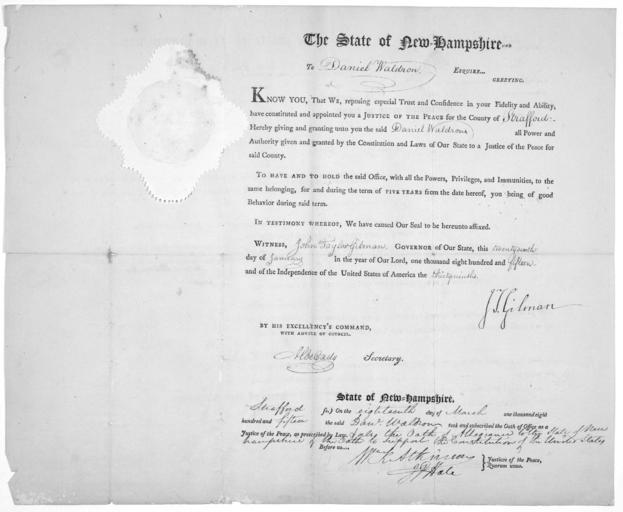 The State of New-Hampshire
To Daniel Waldron Esquire...
GREETING.
KNOW YOU, That WE, reposing especial Trust and Confidence in your Fidelity and Ability,
have constituted and appointed you a JUSTICE OF THE PEACE for the County of Strafford.
Hereby giving and granting unto you the said Daniel Waldron all Power and
Authority given and granted by the Constitution and Laws of Our State to a Justice of the Peace for
said County.
TO HAVE AND TO HOLD the said Office, with all the Powers, Privileges, and Immunities, to the
same belonging, for and during the term of FIVE YEARS from the date hereof, you being of good
Behavior during said term.
IN TESTIMONY WHEREOF, We have caused Our Seal to be hereunto affixed.
WITNESS, John Taylor Gilman GOVERNOR of Our State, this twentyninth
day of January In the year of Our Lord, one thousand eight hundred and fifteen
and of the Independence of the United States of America the thirtyninth.
J. T. Gilman
BY HIS EXCELLENCY'S COMMAND,
WITH ADVICE OF COUNCIL.
Secretary.
State of New-Hampshire.
Strafford ss.) On the eighteenth day of March one thousand eight
hundred and fifteen the said Danl. Waldron took and subscribed the Oath of Office as a
Justice of the Peace, as prescribed by Law, the Oath of Allegiance to the State of New
Hampshire & the Oath to support the Constitution of the United States
Before us...
Wm. K. Atkinson
Hale
Justices of the Peace,
Quorum unus.